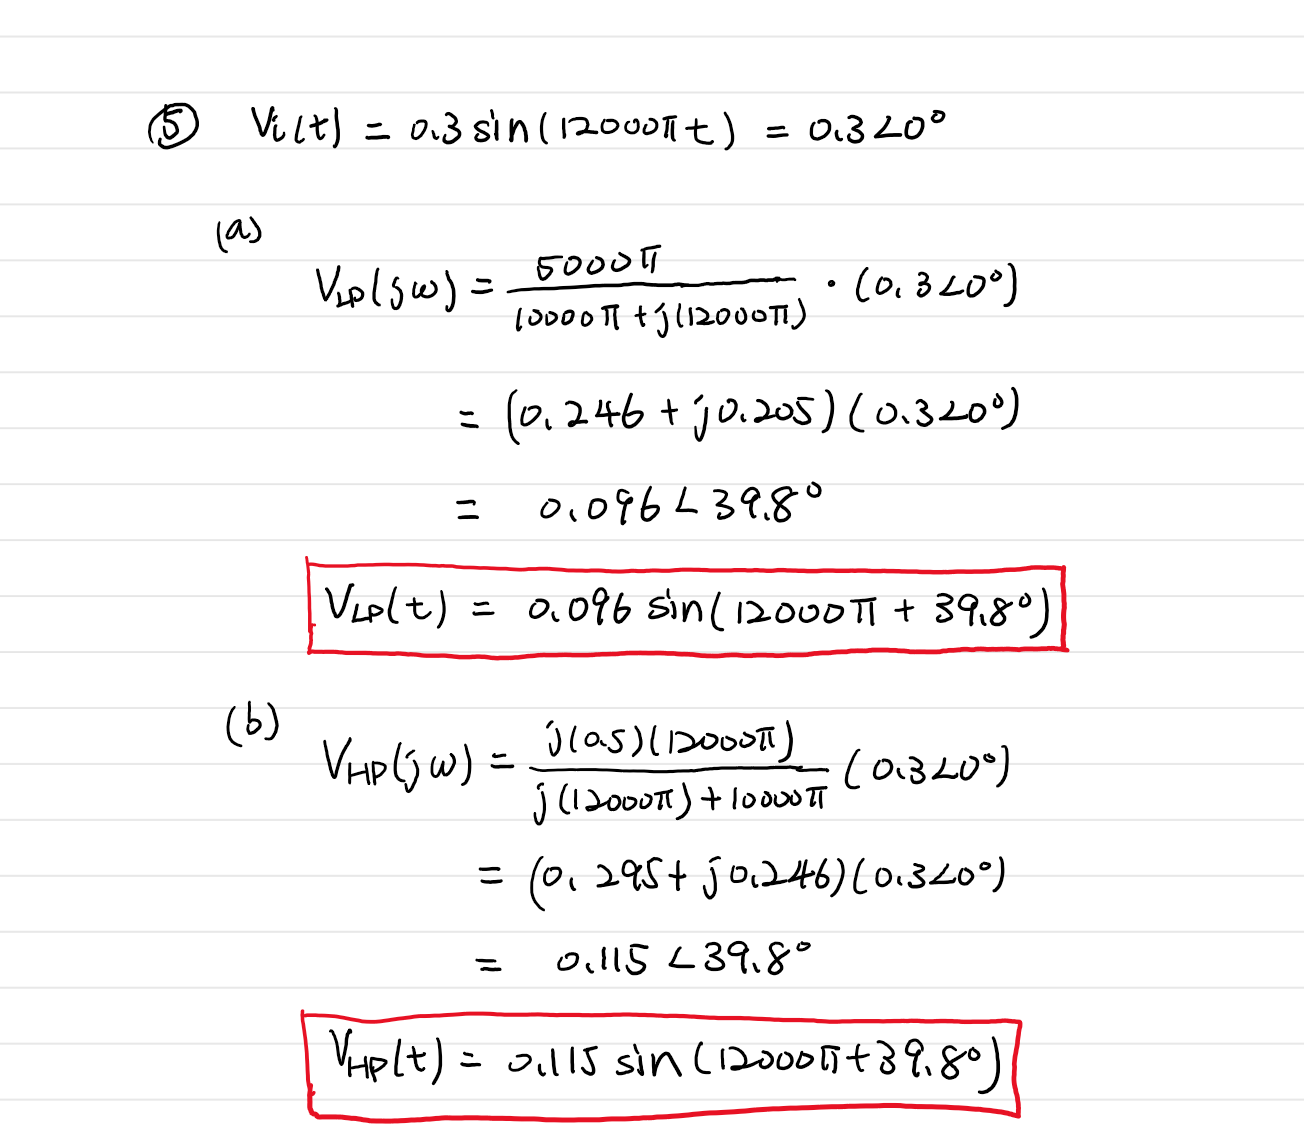 ⑤ Vi(t) = 0.3 sin(12000πt) = 0.3∠0°
(a)
V_LP(jω) = 5000π / (10000π + j(12000π)) · (0.3∠0°)
= (0.246 + j0.205)(0.3∠0°)
= 0.096∠39.8°
V_LP(t) = 0.096 sin(12000π + 39.8°)
(b)
V_HP(jω) = j(0.5)(12000π) / (j(12000π) + 10000π) (0.3∠0°)
= (0.295 + j0.246)(0.3∠0°)
= 0.115∠39.8°
V_HP(t) = 0.115 sin(12000π + 39.8°)